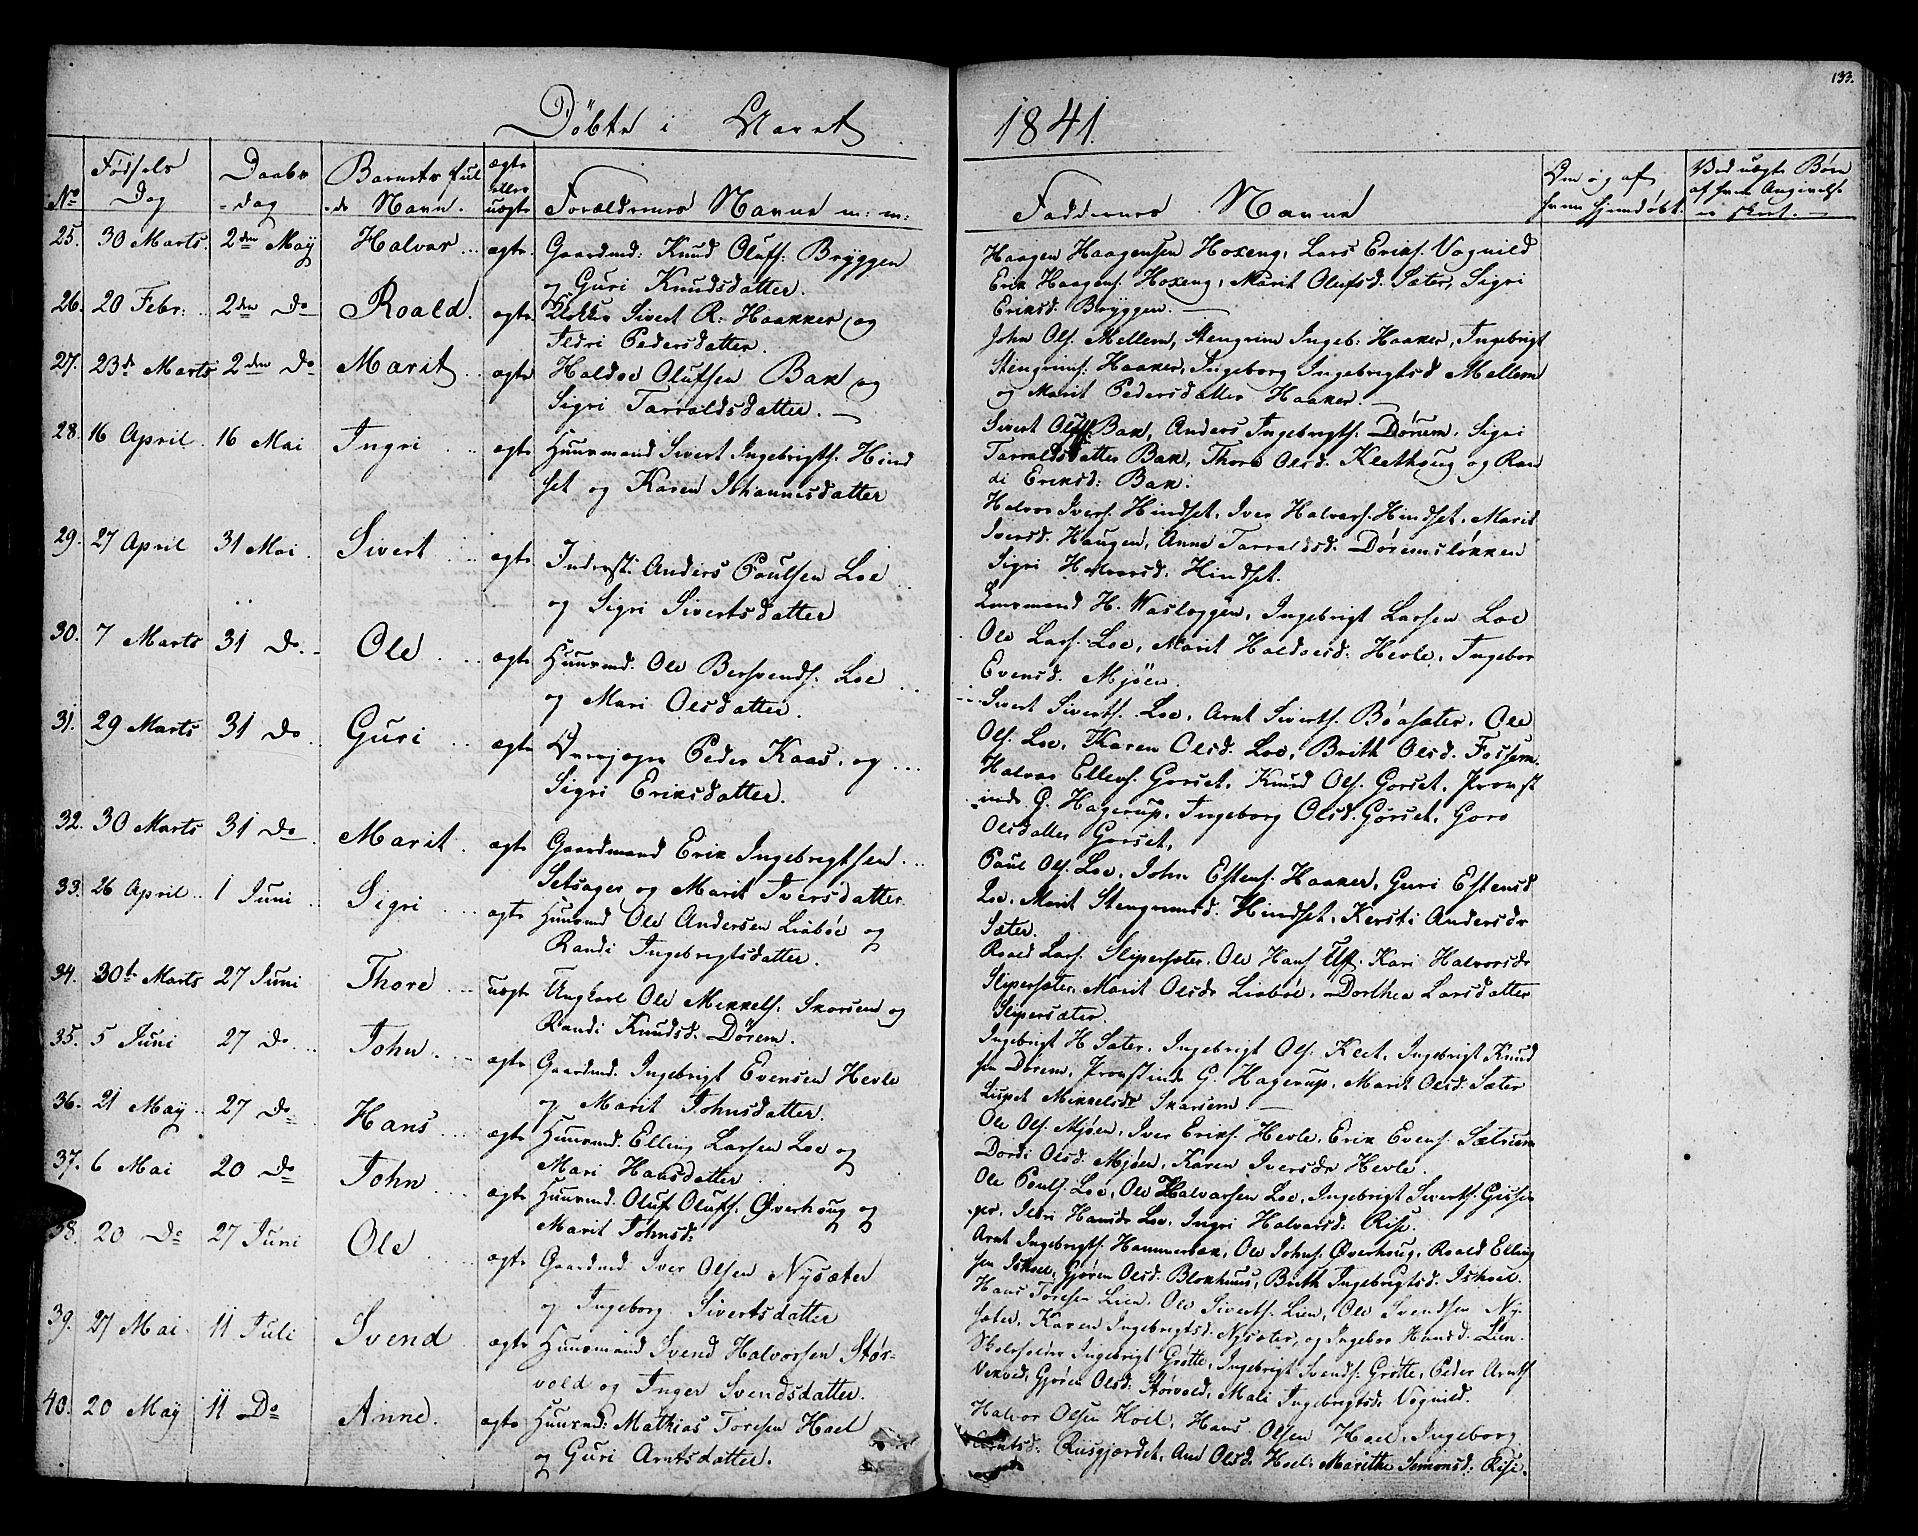 133.
Döbte i Aaret 1841.
No
Fødsels Dag
Daabs-dag
Barnets fulde Navn.
ægte eller uægte
Forældrenes Navne m: m:
Faddernes Navne
Om og af hvem hjemdøbt.
Ved uægte Børn af hvem Angivelse er skeet.
25. 30 Marts. 2den Maÿ Halvor ægte Gaardmd: Knud Olufs. Brÿggen
og Guri Knudsdatter.
Haagen Haagensen Hoxeng, Lars Eriks. Vognild
Erik Haagens. Hoxeng, Marit Olufsd. Sæter, Sigri
Eriksd. Brÿggen.
26. 20 Febr: 2den Do Roald. ægte Klokker Sivert R. Haakker og
Ildri Pedersdatter.
John Ols. Mellem, Stengrim Ingeb. Haaker, Ingebrigt
Stengrims. Haaker, Ingeborg Ingebrigtsd Mellem
og Marit Pedersdatter Haaker.
27. 23de Marts 2den Do Marit ægte Haldoe Olufsen Bak og
Sigri Tarraldsdatter.
Sivert Bak, Anders Ingebrigts. Dørum, Sigri
Tarraldsdatter Bak, Thore Olsd. Kletthoug og Ran
di Eriksd: Bak.
28. 16 April 16 Mai Ingri ægte Huusmand Sivert Ingebrigts. Hind
set og Karen Johannesdatter
Halvor Ivers. Hindset, Iver Halvors. Hindset, Marit
Iversd. Haugen, Anne Tarraldsd. Dørumsløkken
Sigri Halvorsd. Hindset.
29. 27 April 31 Mai Sivert ægte Inderst: Anders Poulsen Loe
og Sigri Sivertsdatter
Lensmand H. Wasloggen, Ingebrigt Larsen Loe
Ole Lars. Loe, Marit Haldoesd. Hevle, Ingebor
Evensd. Mjöen.
30. 7 Marts 31 Do Ole ægte Huusmd. Ole Bersvends. Loe
og Mari Olsdatter.
Sivert Siverts. Loe, Arnt Siverts. Böasæter, Ole
Ols. Loe, Karen Olsd. Loe, Brith Olsd. Fossem.
31. 29 Marts 31 Do Guri ægte Peder Kaas, og
Sigri Eriksdatter.
Halvor Ellevs. Gorset, Knud Ols. Gorset, Provst
inde G. Hagerup, Ingeborg Olsd. Gorset, Goro
Olsdatter Gorset,
32. 30 Marts 31 Do Marit ægte Gaardmand Erik Ingebrigtsen
Setsager og Marit Iversdatter
Poul Ols. Loe, John Estens. Haaker, Guri Estensd
Loe, Marit Stengrimsd. Hindset, Kersti Andersdr
Sæter.
33. 26 April 1 Juni Sigri ægte Huusmd Ole Andersen Liabøe og
Randi Ingebrigtsdatter.
Roald Lars. Slipersæter, Ole Hans. Kari Halvorsdr
Slipersæter, Marit Olsdr Liabøe, Dorthea Larsdatter
Slipersæter.
34. 30te Marts 27 Juni Thore uægte Ungkarl Ole Mikkels. Skorsem og
Randi Knudsd. Dørem.
Ingebrigt H Sæter, Ingebrigt Ols. Klet, Ingebrigt Knud
sen Dørem, Provstinde G. Hagerup, Marit Olsd. Sæter
Mikkelsdr Skorsem.
35. 5 Juni 27 Do John. ægte Gaardmd. Ingebrigt Evensen Hevle
og Marit Johnsdatter.
Ole Ols. Mjöen, Iver Eriks. Hevle, Erik Evens. Sætrum
Dordi Olsd. Mjøen, Karen Iversdr Hevle.
36. 21 Maÿ 27 Do Hans ægte Huusmd. Elling Larsen Loe og
Mari Hansdatter
Ole Pouls. Loe, Ole Halvorsen Loe, Ingebrigt Siverts.
Ildri Hansdr Loe, Ingri Halvorsd. Rise.
37. 6 Mai 20 Do John ægte Huusmd. Oluf Olufs. Øverhoug og
Marit Johnsd:
Arnt Ingebrigts. Hammerbak, Ole Johns. Øverhoug, Roald Elling
sen Ishoel, Gjøren Olsd. Blokhuus, Brith Ingebrigtsd. Ishoel.
38. 20 Do 27 Juni Ole ægte Gaardmd Iver Olsen Nÿsæter
og Ingeborg Sivertsdatter
Hans Toresen Lien, Ole Siverts. Lien, Ole Svendsen Nÿ-
sæter, Karen Ingebrigtsd. Nÿsæter, og Ingebor Hansd. Lien.
39. 27 Mai 11 Juli Svend ægte Huusmand Svend Halvorsen Stør-
vold og Inger Svendsdatter.
Skoleholder Ingebrigt Grøtte, Ingebrigt Svends. Grøtte, Peder Arnts
Gjøren Olsd. Størvold, Mali Ingebrigtsd. Vognild.
40. 20 Maÿ 11 Do Anne. ægte Huusmd: Mathias Toresen Hoel
og Guri Arntsdatter.
Halvor Olsen Hoel, Hans Olsen Hoel, Ingeborg
Arntsd. Riisgjærdet, Ane Olsd. Hoel, Marithe Simonsd. Rise.